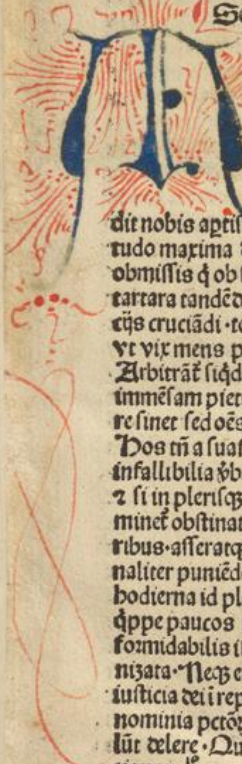 S
dit nobis aꝑtis
tudo maxima
obmissis q̇ ob
tartara tandē d
cijs cruciādi·t
vt vix mens p
Arbitrāt̄ siqd
immēsam piet
re sinet sed oēs
Hos tn̄ a suas
infallibilia v̄b
⁊ si in plerisqꝫ
minet̄ obstinat
ribus·asseratq
naliter puniēd
hodierna id pl
q̇ppe paucos
formidabilis i
nizata·Neqꝫ e
iusticia dei i rep
nominia pctōꝝ
lūt delere·Qu